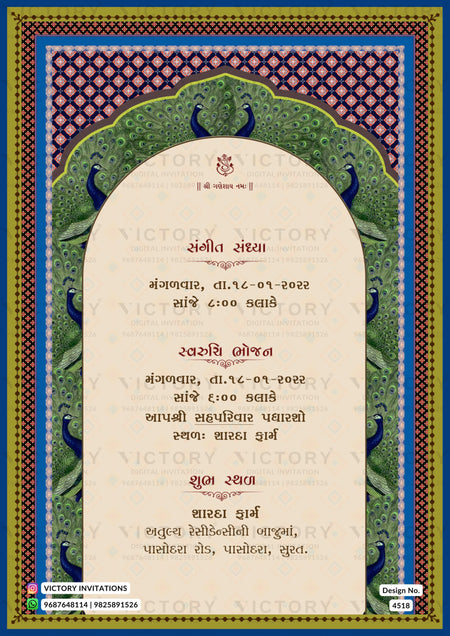 || શ્રી ગણેશાય નમઃ ||
સંગીત સંધ્યા
મંગળવાર, તા.૧૮-૦૧-૨૦૨૨
સાંજે ૮:૦૦ કલાકે
સ્વરુચિ ભોજન
મંગળવાર, તા.૧૮-૦૧-૨૦૨૨
સાંજે ૬:૦૦ કલાકે
આપશ્રી સહપરિવાર પધારશો
સ્થળઃ શારદા ફાર્મ
શુભ સ્થળ
શારદા ફાર્મ
અતુલ્ય રેસીડેન્સીની બાજુમાં,
પાસોદરા રોડ, પાસોદરા, સુરત.
VICTORY INVITATIONS
9687648114 | 9825891526
Design No.
4518
VICTORY
DIGITAL INVITATION
9687648114 | 9825891526